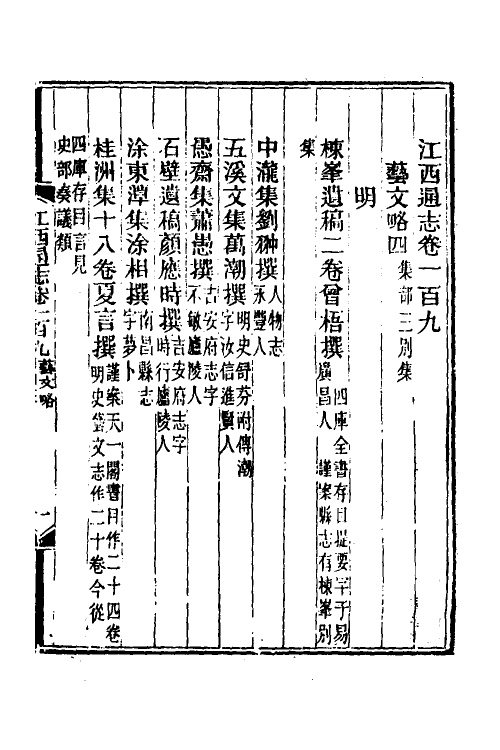 江西通志卷一百九
藝文略四集部三別集
明
棟峯遺稿二卷曾梧撰四庫全書存目提要字于易廣昌人 謹案縣志有棟峯別
集
中瀧集劉翀撰人物志永豐人
五溪文集萬潮撰明史舒芬附傳潮字汝信進賢人
愚齋集蕭愚撰吉安府志字不敏廬陵人
石壁遺稿顏應時撰吉安府志字時行廬陵人
涂東潭集涂相撰南昌縣志字夢卜
桂洲集十八卷夏言撰謹案天一閣書目作二十四卷明史藝文志作二十卷今從
四庫存目言見史部奏議類
江西通志卷一百九 藝文略 一